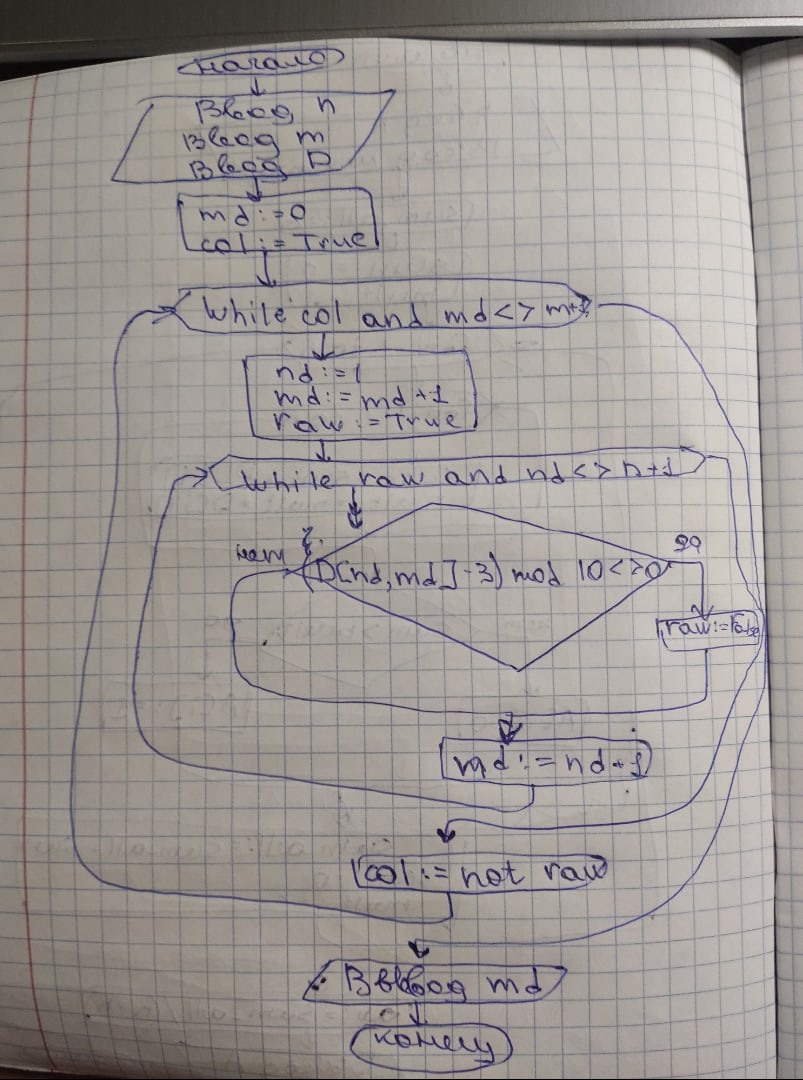 начало
Ввод n
Ввод m
Ввод D
md:=0
col:=True
While col and md<>m+1
nd:=1
md:=md+1
raw:=True
While raw and nd<>n+1
нет
да
(D[nd,md]-3) mod 10<>0
raw:=False
md:=nd+1
col:=not raw
Вывод md
конец